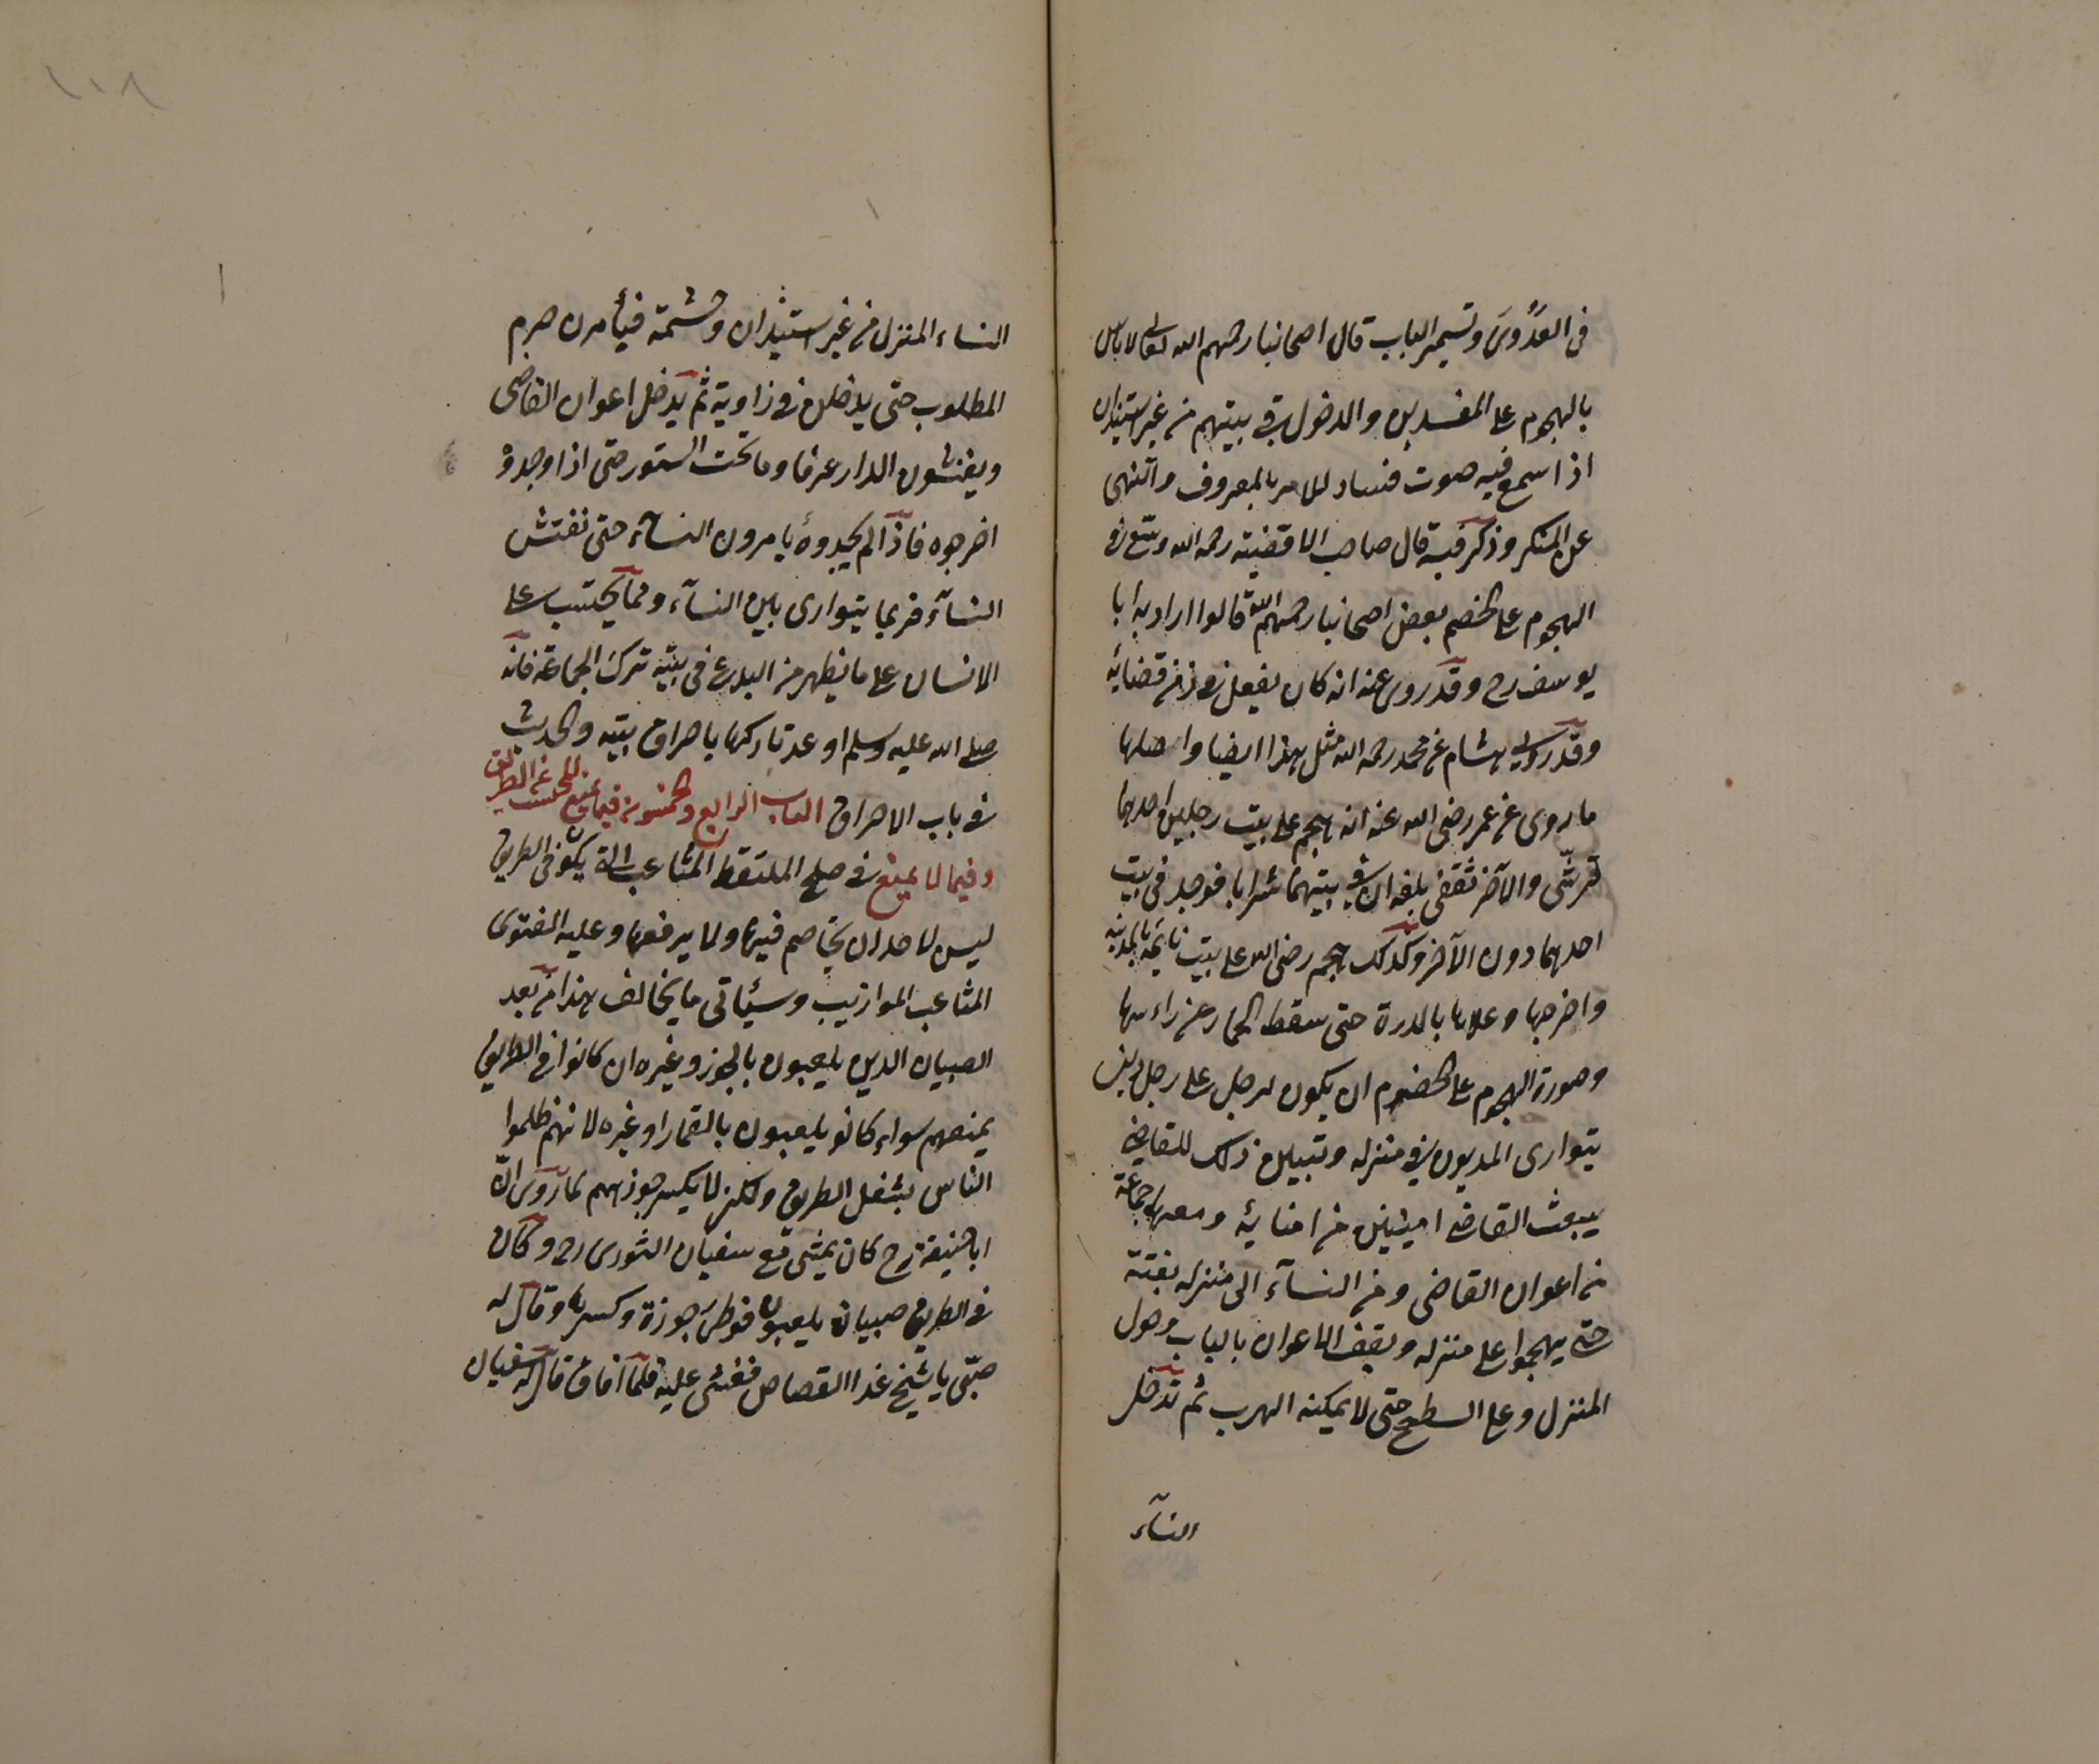 في العَدُوىَ وتسمير الباب قال اصحابنا رحمهم الله تعالى لا باس
بالهجوم على المفسدين والدخول في بيتهم من غير استيذان
اذا سمع فيه صوت فساد للامر بالمعروف والنهى
عن المنكر وذكر فيه قال صاحب الاقضية رحمه الله وسّع في
الهجوم على الخصم بعض اصحابنا رحمهم الله قالوا اراد به ابا
يوسف رح وقد روى عنه انه كان يفعل في زمن قضائه
وقد روى هشام عن محمد رحمه الله مثل هذا ايضا واصلها
ما روى عن عمر رضى الله عنه انه هجم على بيت رجلين احدهما
قرشى والآخر ثقفى بلغه ان في بيتهما شرابا فوجد في بيت
احدهما دون الآخر وكذلك هجم رضى الله على بيت نايحة بالمدينه
واخرجها وعلاها بالدرة حتى سقط الخمار عن راءسها
وصورة الهجوم على الخصوم ان يكون لرجل على رجل دين
يتوارى المديون في منزله وتبين ذلك للقاضى
يبعث القاضى امينين من امنائه ومعهما جماعة
من اعوان القاضى ومن النسآء الى منزله بغتة
حتى يهجموا على منزله ويقف الاعوان بالباب وحول
المنزل وعلى السطح حتى لا يمكنه الهرب ثم تدخل
النسآء
١١٨
النساء المنزل من غير استيذان وحشمة فيأمرن حرم
المطلوب حتى يدخلن في زاوية ثم يدخل اعوان القاضى
ويفتشون الدار غرفا وما تحت الستور حتى اذا وجدوْ
اخرجوه فاذا لم يجدوهُ يامرون النسآء حتى تفتش
النسآء فربما يتوارى بين النسآء ومما يحتسب على
الانسان على ما يظهر من البدع في بيته ترك الجماعة فانه
صلى الله عليه وسلم اوعد تاركها باحراق بيته والحديث
في باب الاحراق الباب الرابع والخمسون فيما يمنع المحتسب عن الطريق
وفيما لا يمنع في صلح الملتقط المثاعب التى يكون في الطريق
ليس لاحد ان يخاصم فيها ولا يرفعها وعليه الفتوى
المثاعب الموازيب وسيأتى ما يخالف هذا من بعد
الصبيان الذين يلعبون بالجوز وغيره ان كانوا في الطريق
يمنعهم سواء كانو يلعبون بالقمار او غيره لانهم ظلموا
الناس بشغل الطريق ولكن لا يكسر جوزهم لما روى انّ
ابا حنيفة رح كان يمشى مع سفيان الثورى رح وكان
في الطريق صبيان يلعبون فوطئ جوزة وكسرها وقال له
صبّى يا شيخ غدا القصاص فغشى عليه فلما افاق قال له سفيان